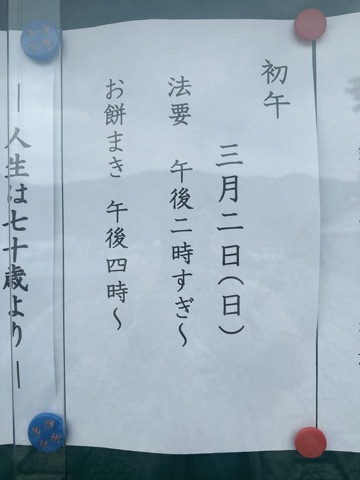 初午
三月二日(日)
法要 午後二時すぎ~
お餅まき 午後四時~
―人生は七十歳より―